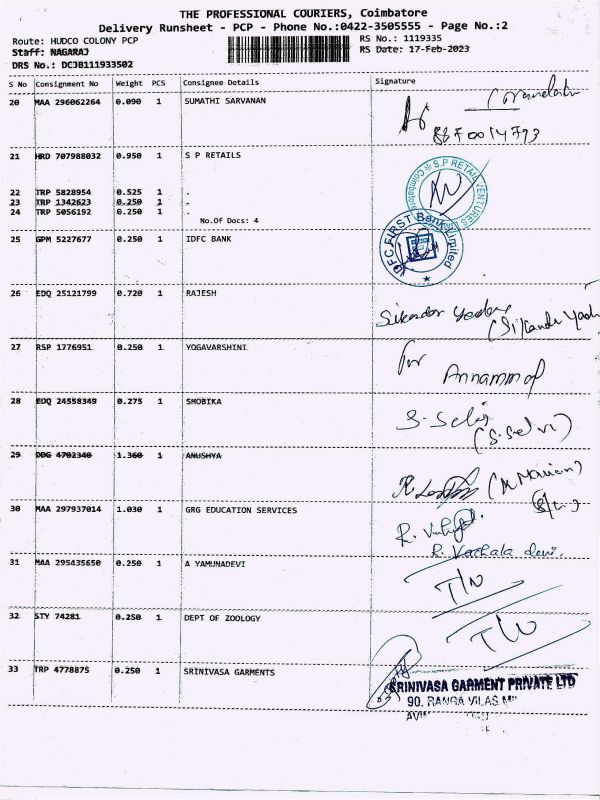 THE PROFESSIONAL COURIERS, Coimbatore
Delivery Runsheet - PCP - Phone No.:0422-3505555 - Page No.:2
Route: HUDCO COLONY PCP
RS No.: 1119335
Staff: NAGARAJ
RS Date: 17-Feb-2023
DRS No.: DCJB111933502
S No Consignment No Weight PCS Consignee Details Signature
20 MAA 296062264 0.090 1 SUMATHI SARVANAN
21 HRD 707988032 0.950 1 S P RETAILS
S.P RETAIL VENTURES
Coimbatore
22 TRP 5828954 0.525 1 .
23 TRP 1342623 0.250 1 .
24 TRP 5056192 0.250 1 .
No.Of Docs: 4
25 GPM 5227677 0.250 1 IDFC BANK
IDFC FIRST Bank Limited
26 EDQ 25121799 0.720 1 RAJESH
27 RSP 1776951 0.250 1 YOGAVARSHINI
for
28 EDQ 24558349 0.275 1 SHOBIKA
(S.Selvi)
29 DDG 4702340 1.360 1 ANUSHYA
30 MAA 297937014 1.030 1 GRG EDUCATION SERVICES
R. Vachala devi.
31 MAA 295435650 0.250 1 A YAMUNADEVI
32 STY 74281 0.250 1 DEPT OF ZOOLOGY
33 TRP 4778875 0.250 1 SRINIVASA GARMENTS
SRINIVASA GARMENT PRIVATE LTD
90, RANGA VILAS